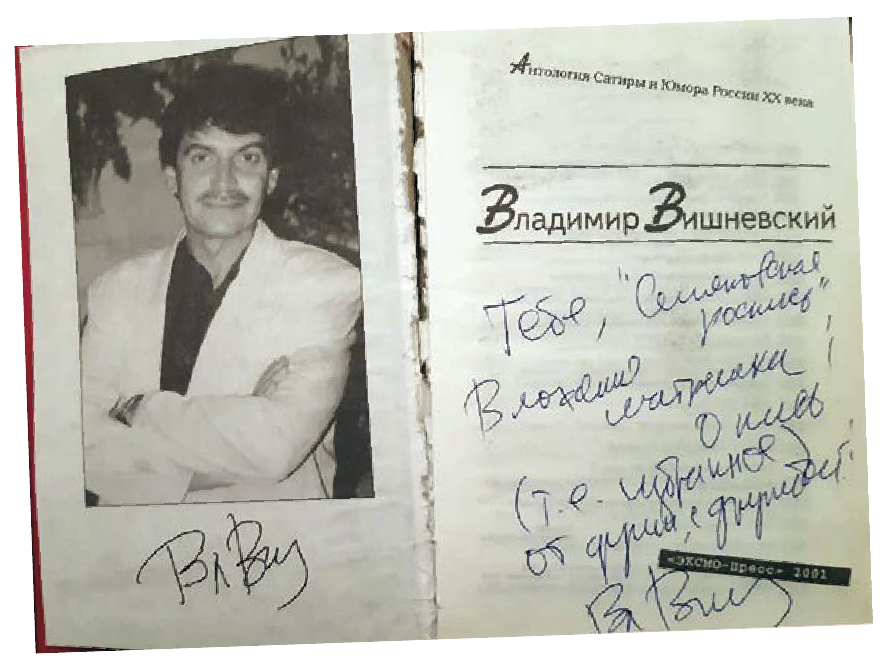 Вл Виш
Антология Сатиры и Юмора России XX века
Владимир Вишневский
Тебе, "Семёновская
роспись"
В локаны
матрешки
Опись
(т.е. избранное)
от души, с дружбой!
«ЭКСМО-пресс» 2001
Вл Виш